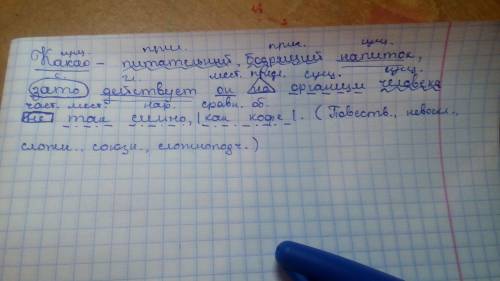 сущ. прил. прил. сущ.
Какао – питательный, бодрящий напиток,
с. гл. мест. предл. сущ. сущ.
зато действует он на организм человека
част. мест. нар. сравн. об.
не так сильно, | как кофе |. ( Повеств., невоскл.,
сложн., союзн., сложноподч. )